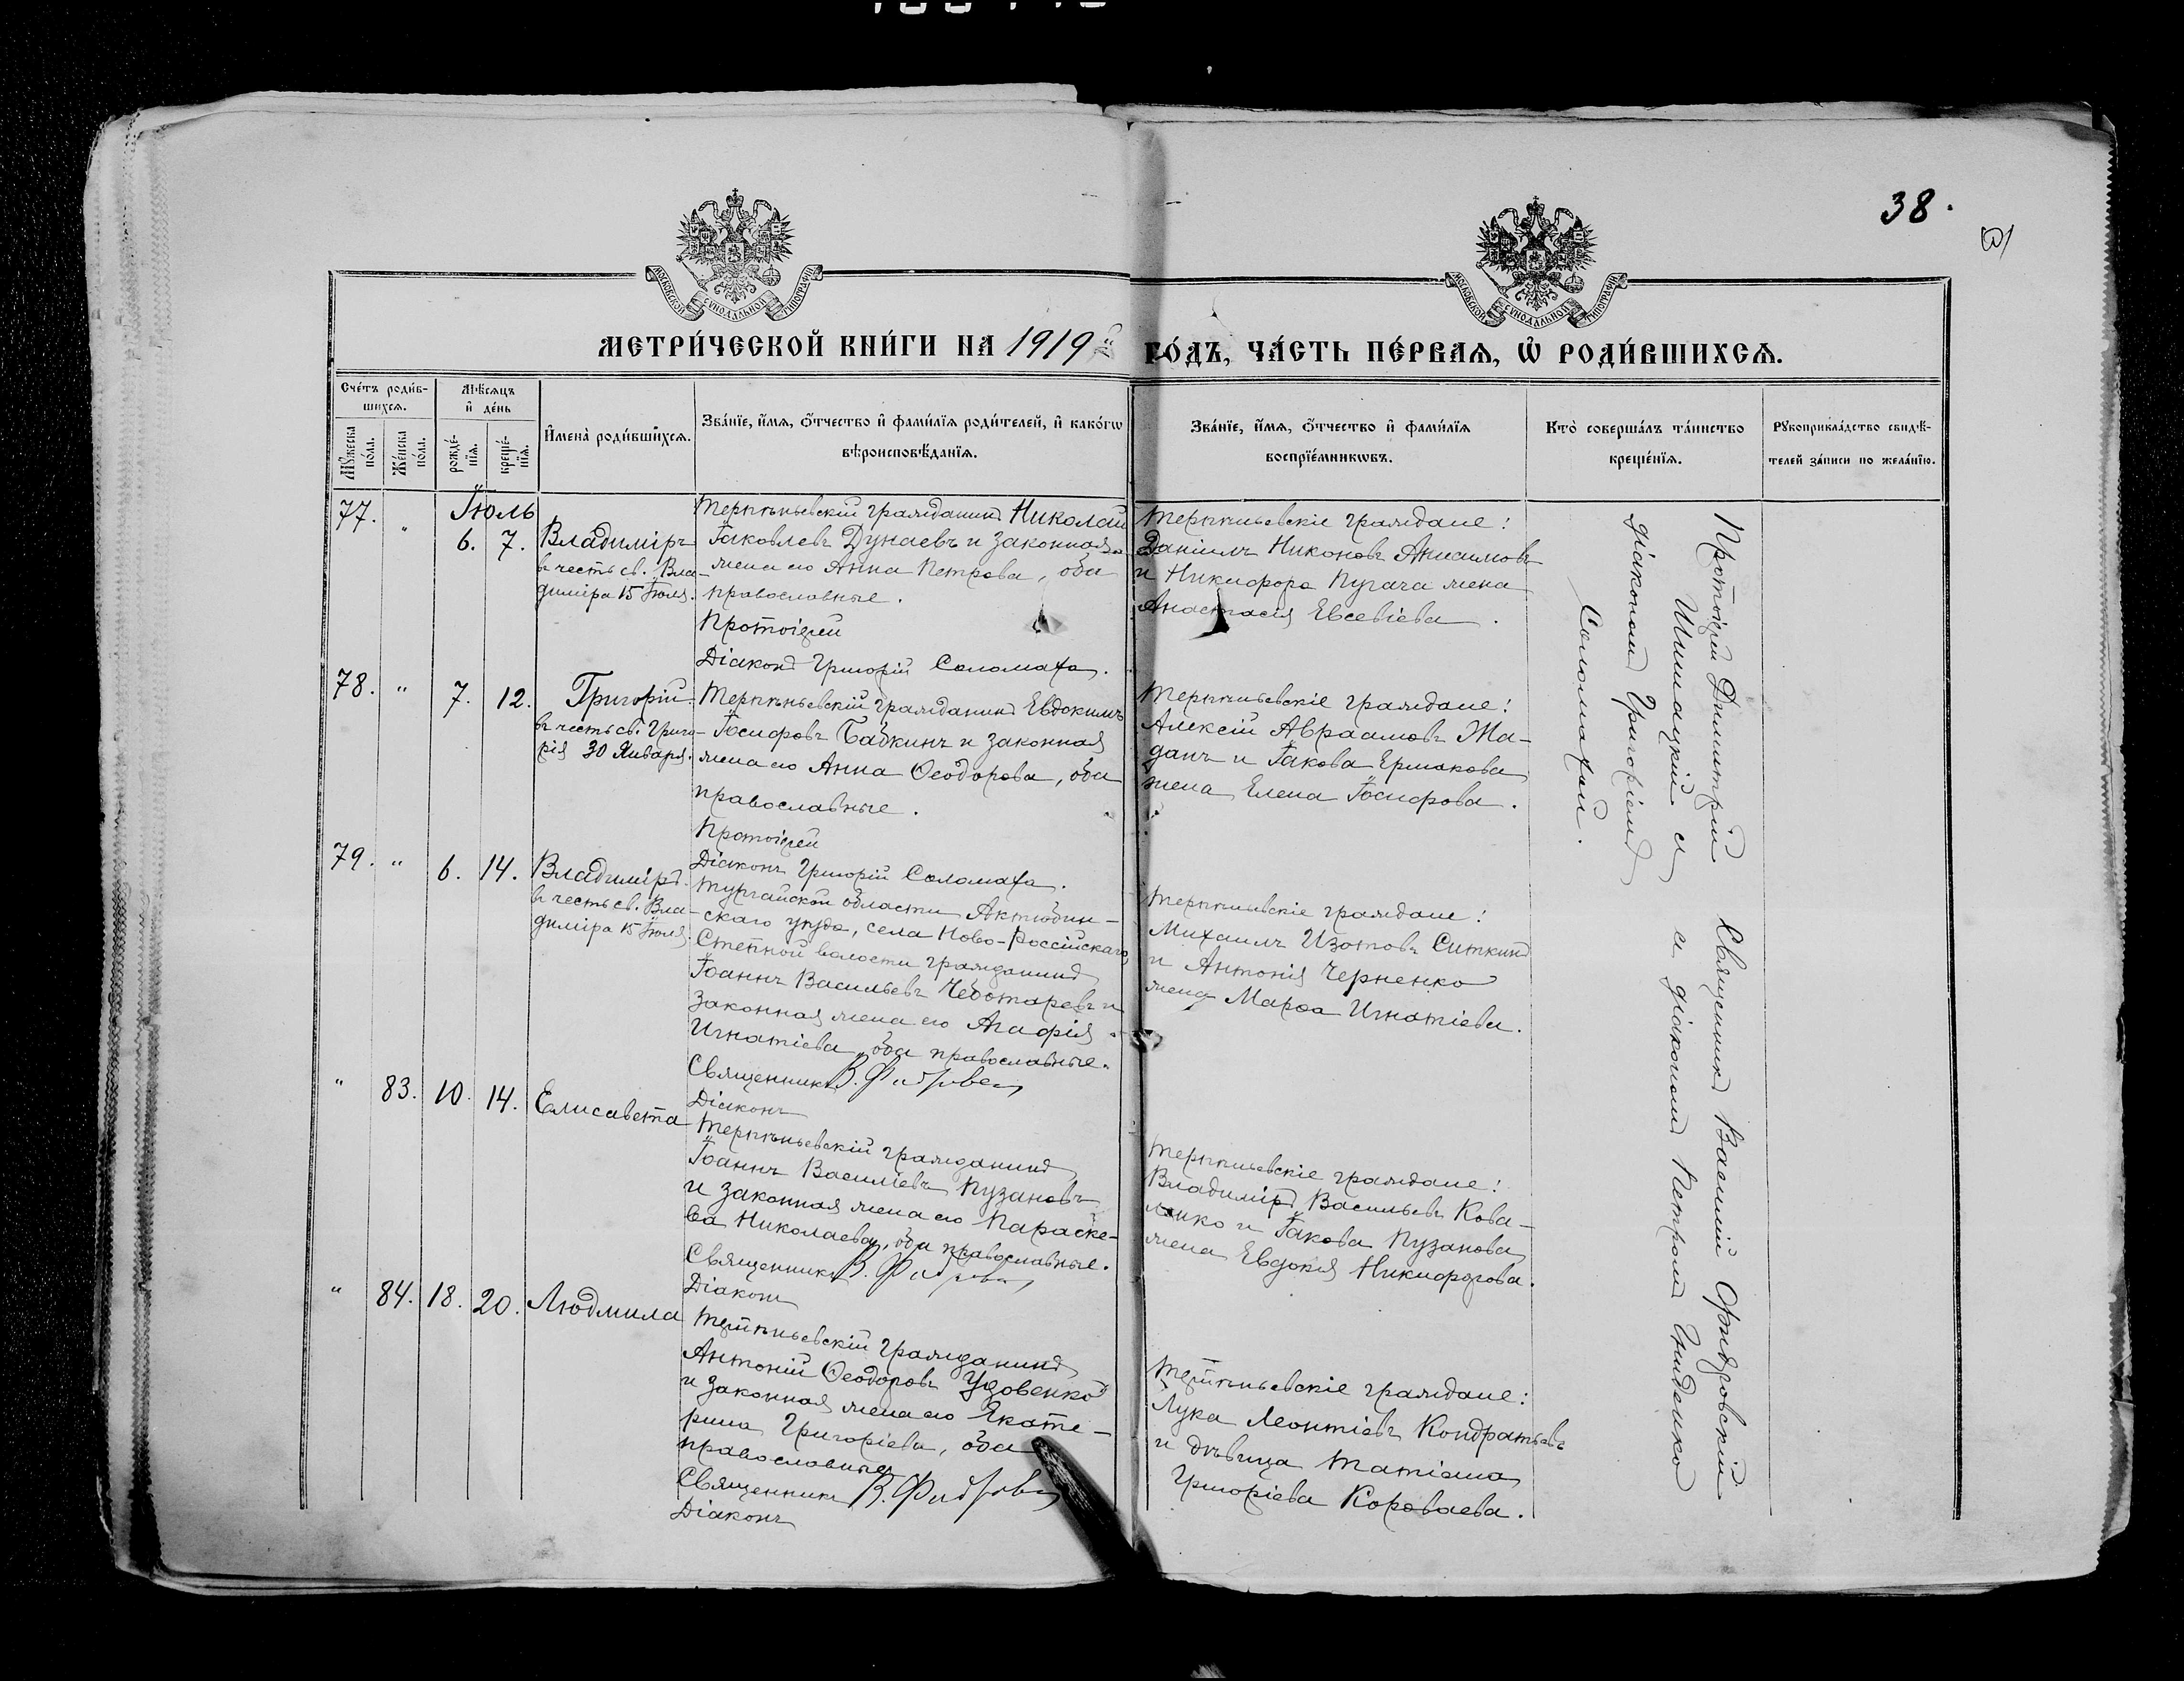 38.
МОСКОВСКОЙ СѴНОДАЛЬНОЙ ТИПОГРАФІИ
МОСКОВСКОЙ СѴНОДАЛЬНОЙ ТИПОГРАФІИ
МЕТРИ́ЧЕСКОЙ КНИ́ГИ НА 1919 й
ГО́ДЪ, ЧА́СТЬ ПЕ́РВАѦ, Ѡ҆ РОДИ́ВШИХСѦ.
Сче́тъ роди́в-
шихсѧ.
Мѣ́сѧцъ
и҆ де́нь
Мꙋ́жеска
по́лл.
Же́нска
по́лл.
рожде́-
нїѧ.
креще́-
нїѧ.
И҆мена̀ роди́вшихсѧ.
Зва́нїе, и҆́мѧ, ѻ҆́тчество и҆ фами́лїѧ роди́телей, и҆ како́гѡ
вѣроисповѣ́данїѧ.
Зва́нїе, и҆́мѧ, ѻ҆́тчество и҆ фами́лїѧ
воспрїе́мникѡвъ.
Кто̀ соверша́лъ та́инство
креще́нїѧ.
Рꙋкоприкла́дство свидѣ́-
телей за́писи по жела́нїю.
Іюль
77. " 6. 7.
Владиміръ
въ честь св. Вла-
диміра 15 Іюля.
Терпѣньевскій гражданинъ Николай
Іаковлевъ Дунаевъ и законная
жена его Анна Петрова, оба
православные.
Протоіерей
Діаконъ Григорій Соломаха.
Терпѣньевскіе граждане:
Даніилъ Никоновъ Анисимовъ
и Никифора Пугача жена
Анастасія Евсевіева.
78. " 7. 12.
Григорій
въ честь св. Григо-
рія 30 Января.
Терпѣньевскій гражданинъ Евдокимъ
Іосифовъ Бабкинъ и законная
жена его Анна Ѳеодорова, оба
православные.
Протоіерей
Діаконъ Григорій Соломаха.
Терпѣньевскіе граждане:
Алексій Авраамовъ Жа-
данъ и Іакова Ермакова
жена Елена Іосифова.
79. " 6. 14.
Владиміръ
въ честь св. Вла-
диміра 15 Іюля.
Тургайской области Актюбин-
скаго уѣзда, села Ново-Россійскаго,
Степной волости гражданинъ
Іоаннъ Васильевъ Чеботаревъ и
законная жена его Агафія
Игнатіева, оба православные.
Священникъ
Діаконъ
Терпѣньевскіе граждане:
Михаилъ Изотовъ Ситкинъ
и Антонія Черненко
жена Марѳа Игнатіева.
" 83. 10. 14.
Елисавета
Терпѣньевскій гражданинъ
Іоаннъ Василіевъ Пузановъ
и законная жена его Параске-
ва Николаева, оба православные.
Священникъ
Діаконъ
Терпѣньевскіе граждане:
Владиміръ Васильевъ Кова-
ленко и Іакова Пузанова
жена Евдокія Никифорова.
" 84. 18. 20.
Людмила
Терпѣньевскій гражданинъ
Антоній Ѳеодоровъ Удовенко
и законная жена его Екате-
рина Григоріева, оба
православные
Священникъ
Діаконъ
Терпѣньевскіе граждане:
Лука Леонтіевъ Кондратьевъ
и дѣвица Татіана
Григоріева Короваева.
Протоіерей Димитрій
съ
діакономъ Григоріемъ
Соломахой.
Священникъ Василій
съ діакономъ Петромъ